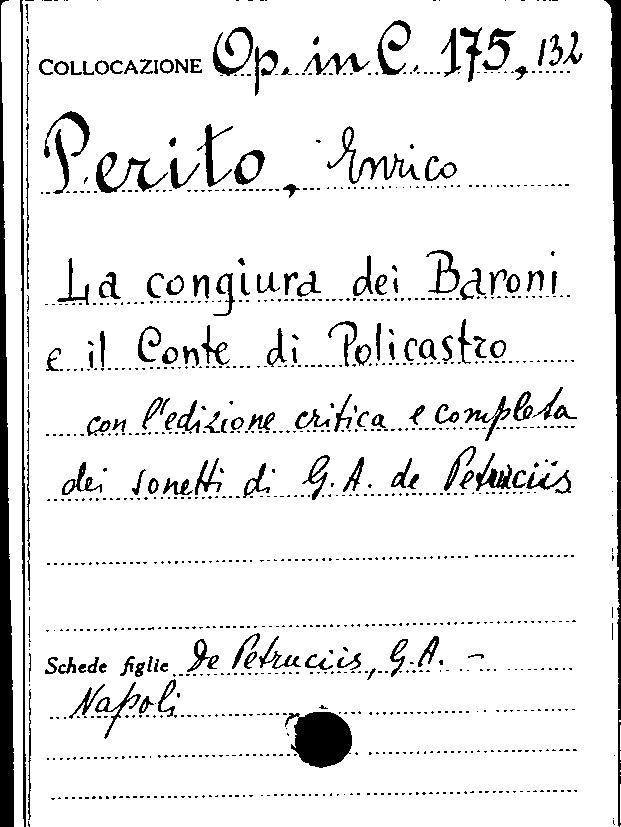 COLLOCAZIONE Op. in C. 175, 132
Perito, Enrico
La congiura dei Baroni
e il Conte di Policastro
con l'edizione critica e completa
dei sonetti di G. A. de Petruciis
Schede figlie De Petruciis, G. A. –
Napoli